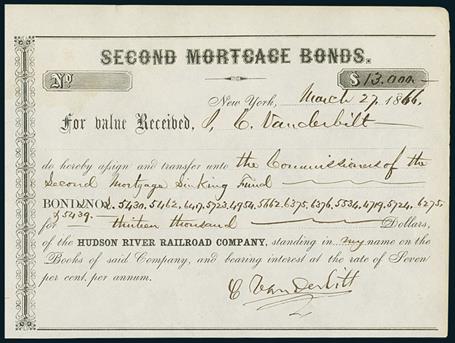 SECOND MORTGAGE BONDS.
No $ 13,000 —
New York, March 27, 1866.
For value Received, I, C. Vanderbilt
do hereby assign and transfer unto the Commissioners of the
Second Mortgage Sinking Fund
BOND NOS. 5430, 5462, 6417, 5723, 4954, 5662, 6375, 6376, 5534, 4719, 5724, 6275,
& 5439 —
for thirteen thousand Dollars,
of the HUDSON RIVER RAILROAD COMPANY, standing in my name on the
Books of said Company, and bearing interest at the rate of Seven
per cent. per annum.
C Vanderbilt